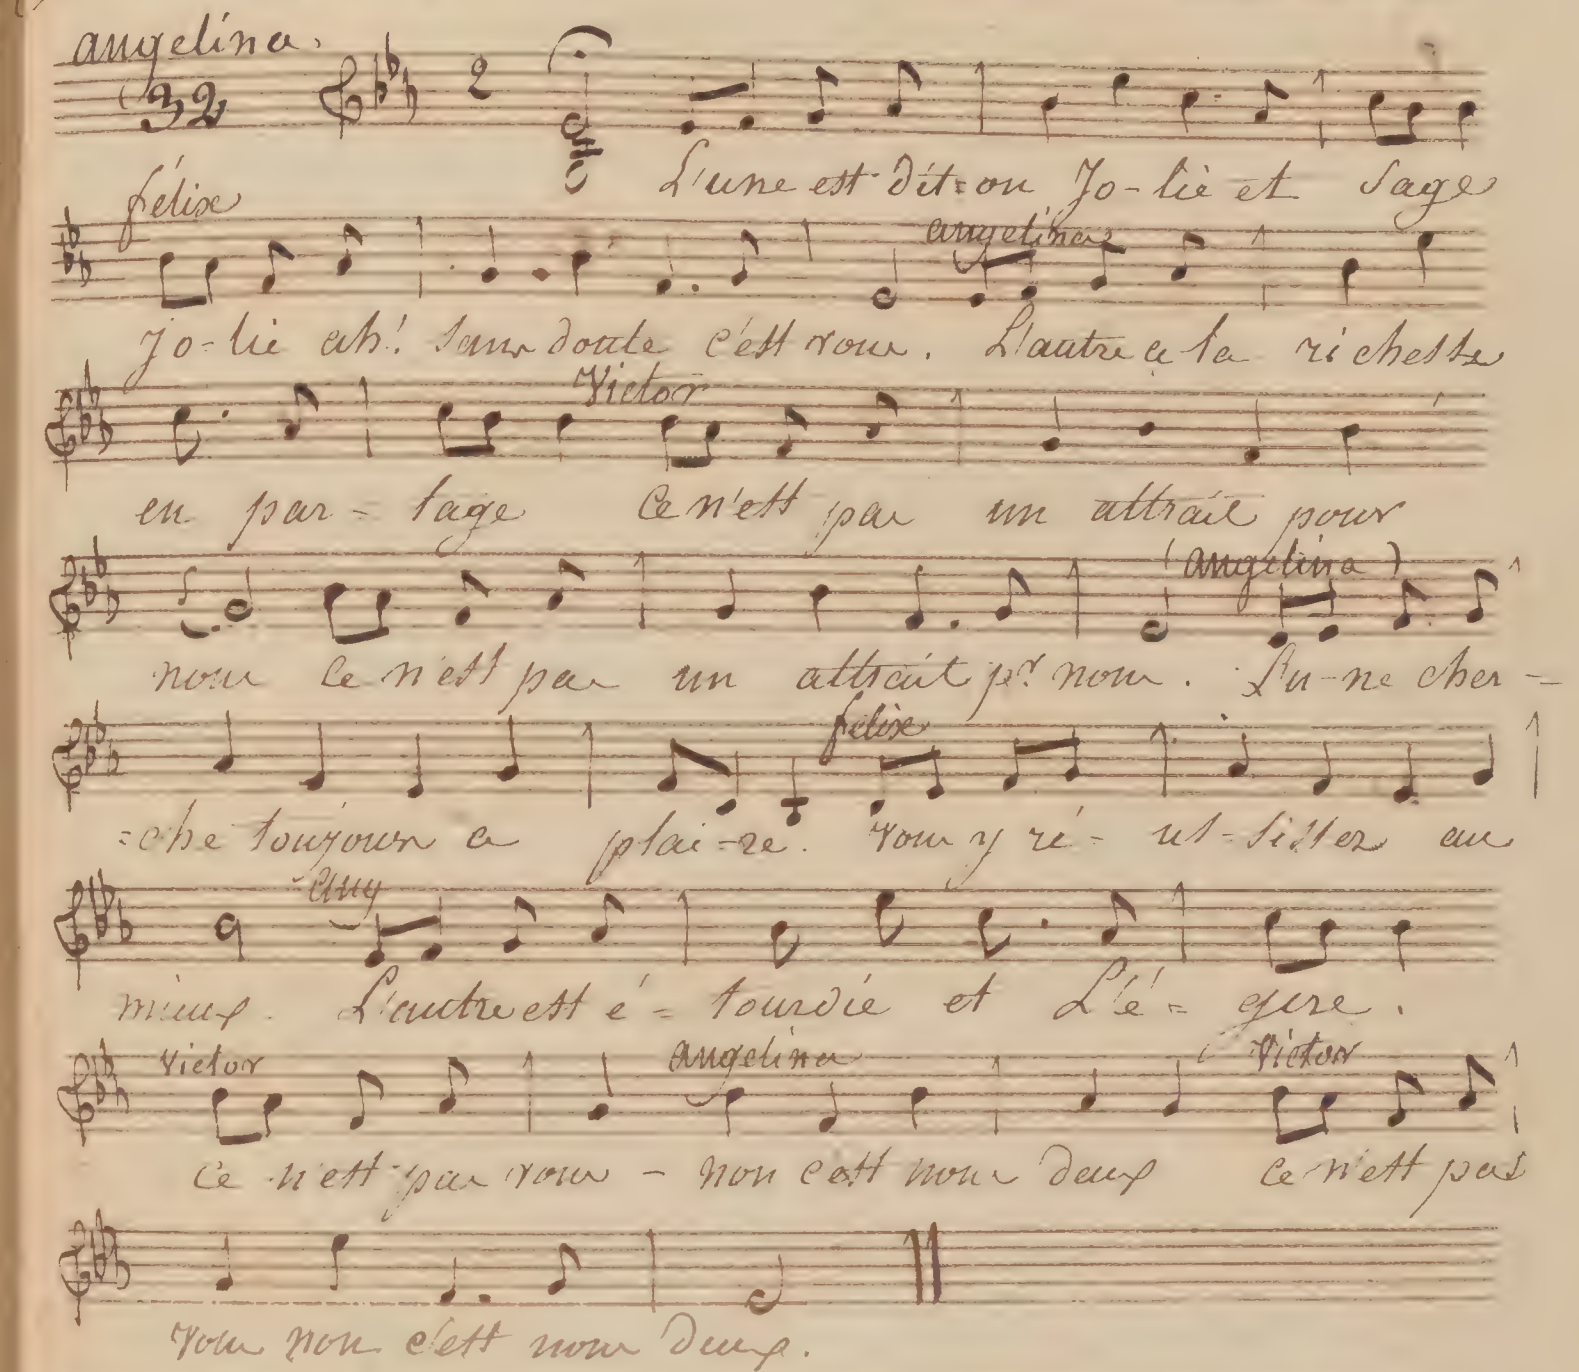 angelina.
32 2
L'une est dit=on Jo-lie et Sage
félix
angelina
Jo-lie ah! sans doute c'est vous. L'autre a la richesse
Victor
en par-tage Ce n'est pas un attrait pour
(angelina)
nous Ce n'est pas un attrait pr nous. L'u-ne cher-
felix
=che toujours a plai-re. vous y ré-us-sissez au
ang
mieux. L'autre est é-tourdie et Lé-gere.
Victor angelina Victor
Ce n'est pas vous - non c'est nous deux Ce n'est pas
vous non c'est nous deux.